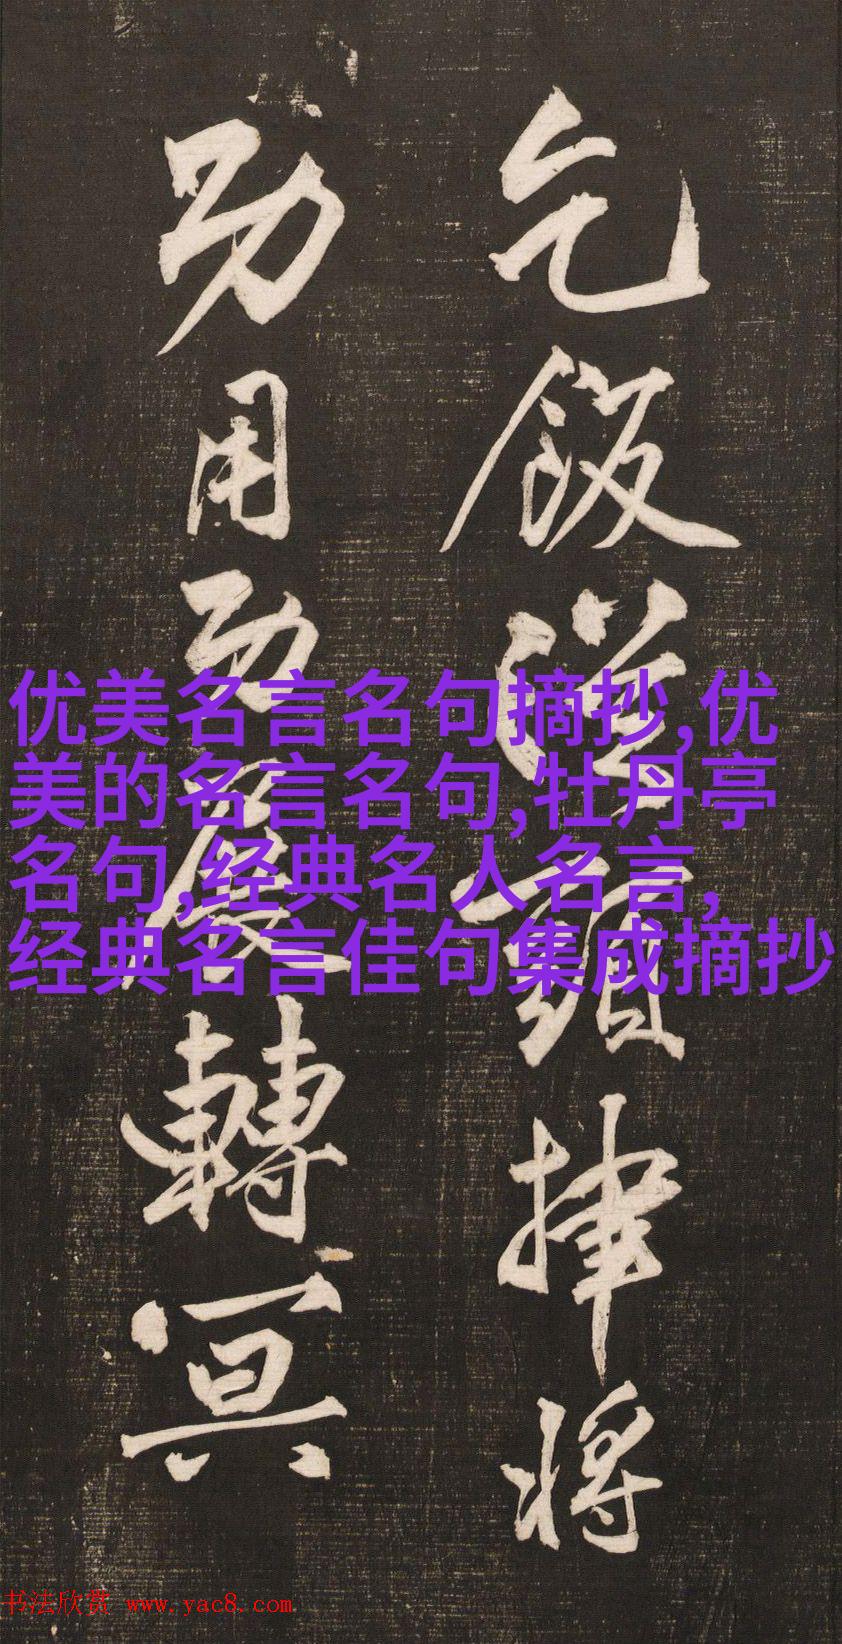 乞飯從頭將
功用功展轉冥
优美名言名句摘抄,优
美的名言名句,牡丹亭
名句,经典名人名言,
经典名言佳句集成摘抄
书法欣赏 www.yac8.com